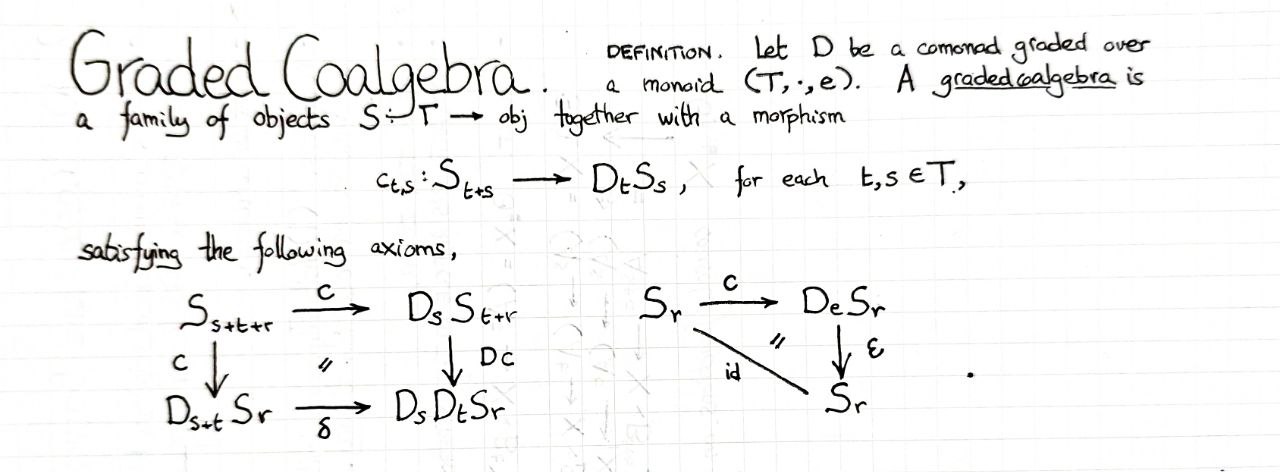 Graded Coalgebra. DEFINITION. Let D be a comonad graded over
a monoid (T, ·, e). A graded coalgebra is
a family of objects S : T → obj together with a morphism
c_{t,s} : S_{t+s} → D_t S_s, for each t, s ∈ T,
satisfying the following axioms,
S_{s+t+r} c→ D_s S_{t+r} S_r c→ D_e S_r
c ↓ = ↓ Dc id = ↓ ε .
D_{s+t} S_r →δ D_s D_t S_r S_r